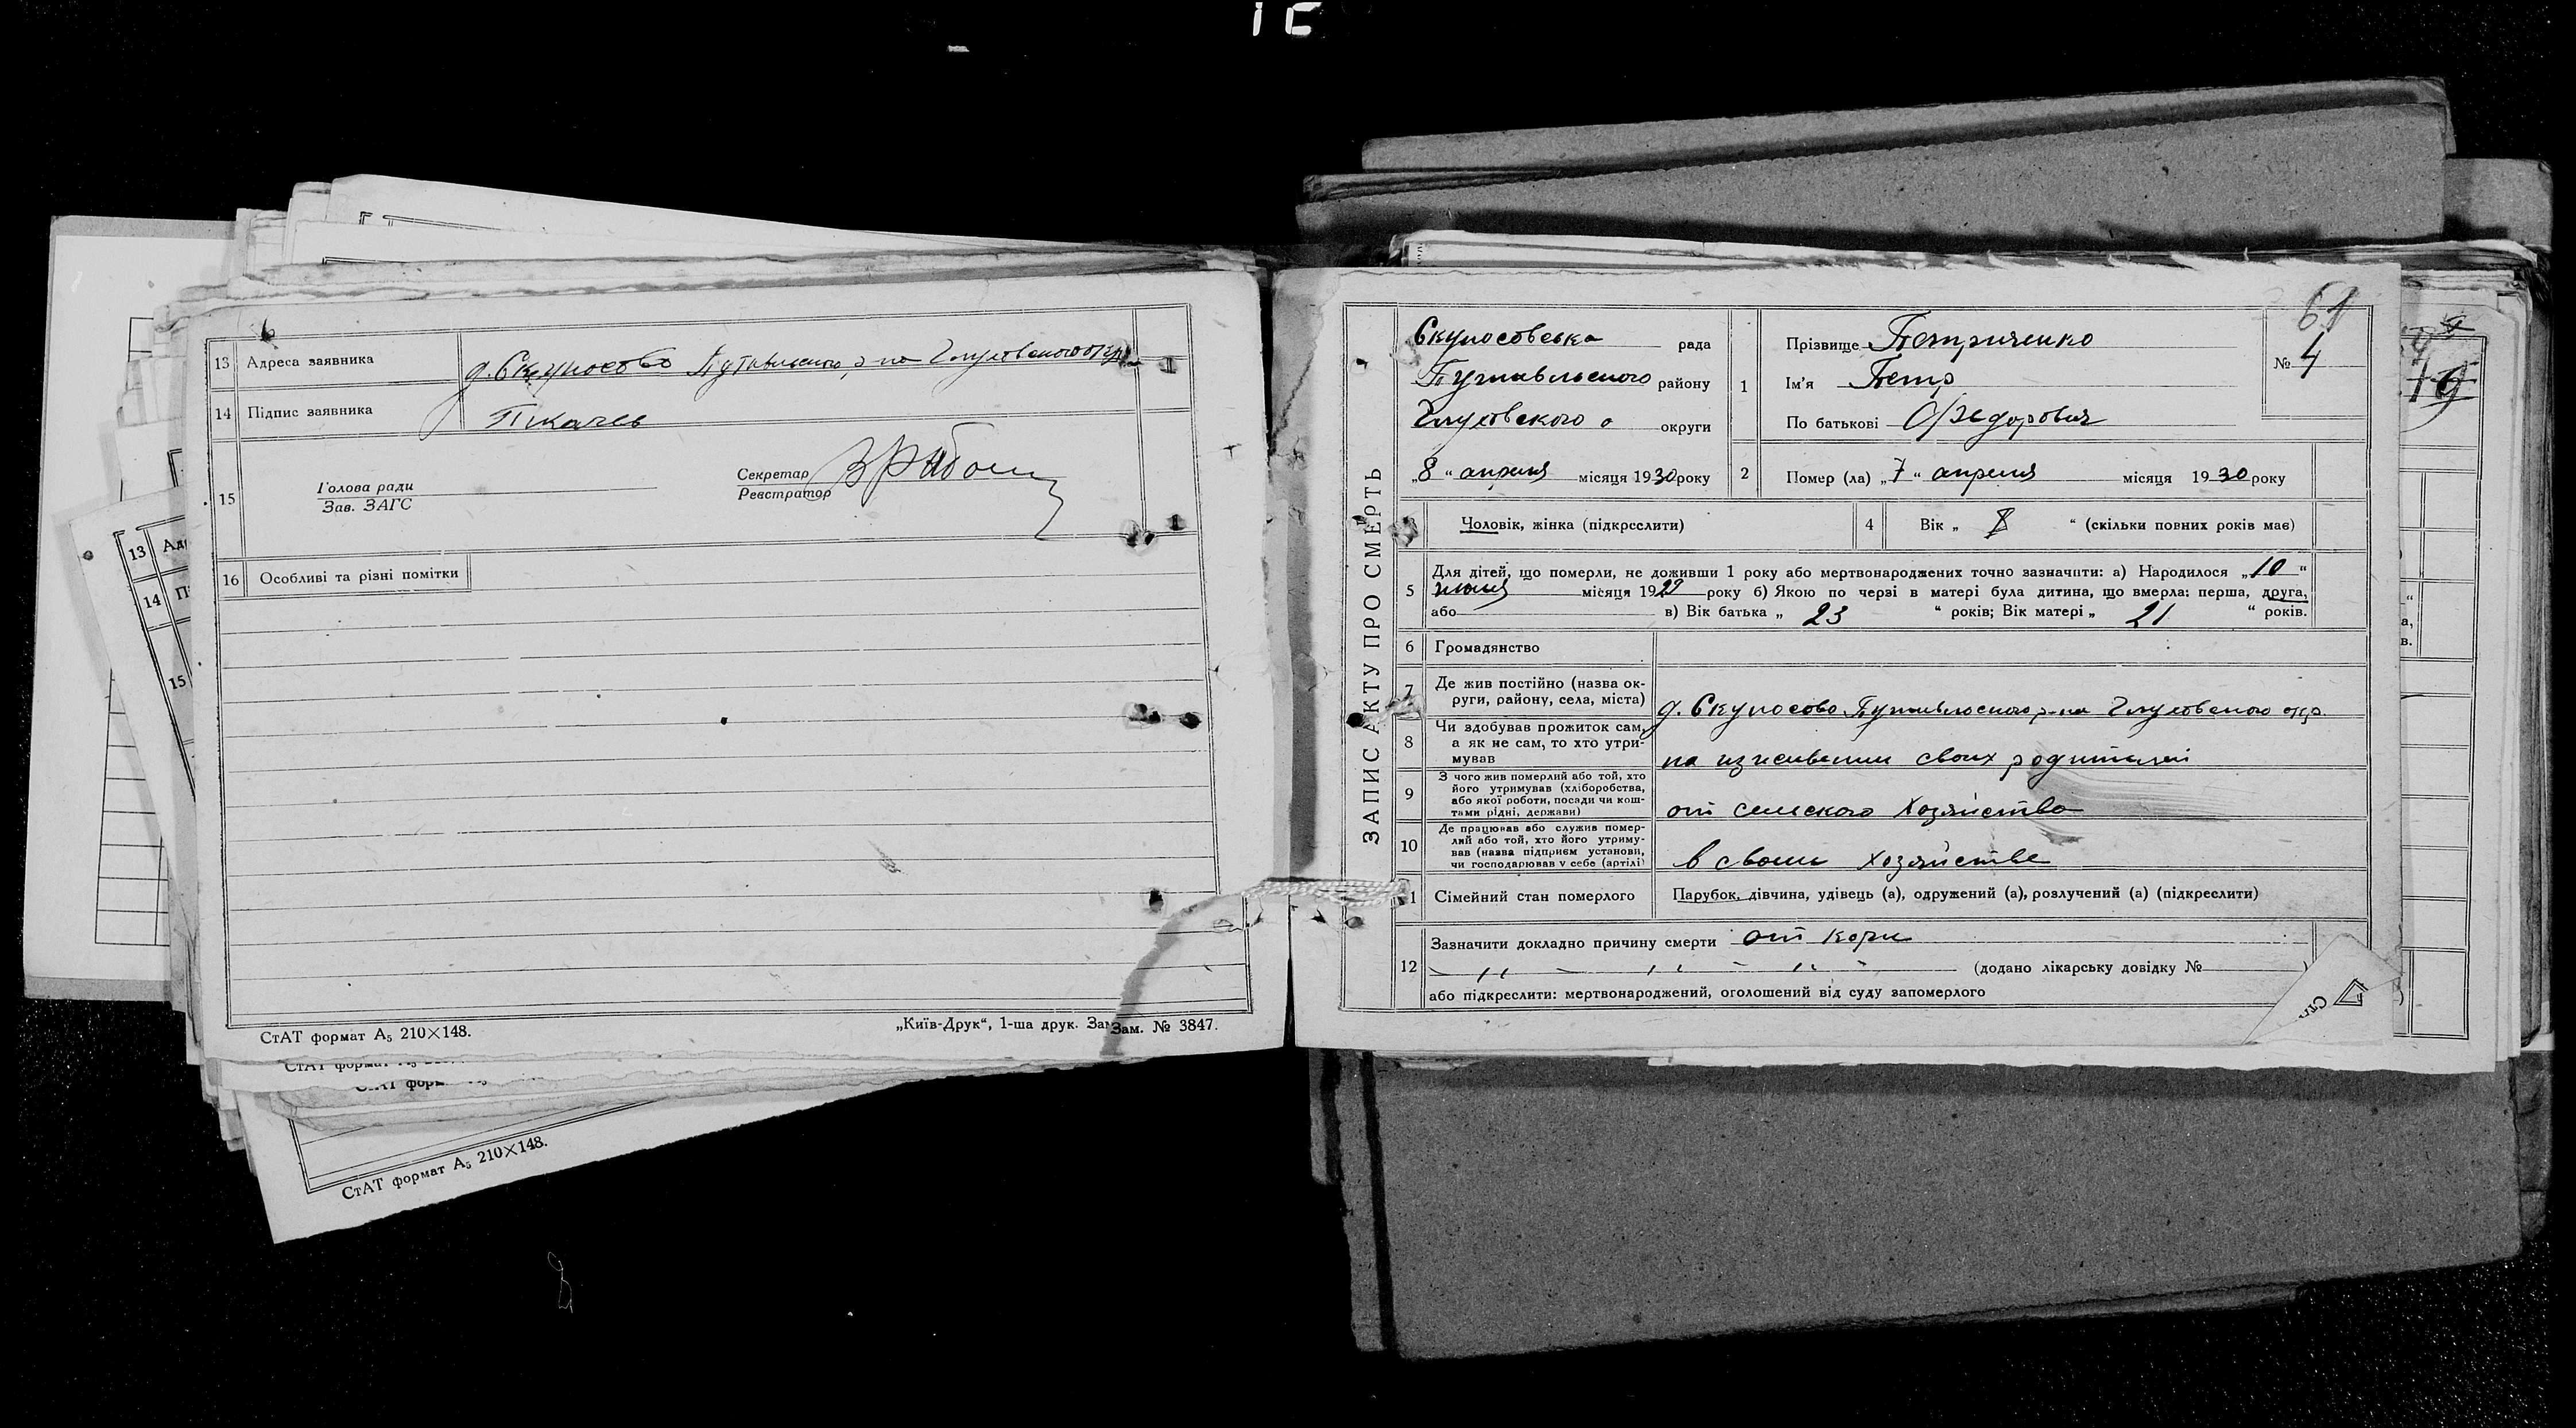 1 Є
13 Адреса заявника д. Скуносово Путивльского р-на Глуховского окр.
14 Підпис заявника Ткачев
15 Голова ради
Зав. ЗАГС
Секретар
Реєстратор
16 Особливі та різні помітки
СтАТ формат А5 210×148.
„Київ-Друк“, 1-ша друк. Зам. № 3847.
СтАТ формат А5 210×148.
13
14
15
ЗАПИС АКТУ ПРО СМЕРТЬ
61
№ 4
Скуносовська рада
Путивльского району
Глуховского о округи
„8“ апреля місяця 1930 року
1 Прізвище Петриченко
Ім'я Петр
По батькові Федорович
2 Помер (ла) „7“ апреля місяця 1930 року
Чоловік, жінка (підкреслити)
4 Вік „ “ (скільки повних років має)
5 Для дітей, що померли, не доживши 1 року або мертвонароджених точно зазначити: а) Народилося „10“
місяця 1929 року б) Якою по черзі в матері була дитина, що вмерла: перша, друга,
або в) Вік батька „ 23 “ років; Вік матері „ 21 “ років.
6 Громадянство
7 Де жив постійно (назва округи, району, села, міста)
д. Скуносово Путивльского р-на Глуховского окр.
8 Чи здобував прожиток сам,
а як не сам, то хто утри-
мував
на иждивении своих родителей
9 З чого жив померлий або той, хто
його утримував (хліборобства,
або якої роботи, посади чи кош-
тами рідні, держави)
от сельского хозяйства
10 Де працював або служив помер-
лий або той, хто його утриму-
вав (назва підприєм установи,
чи господарював у себе (артілі)
в своем хозяйстве
1 Сімейний стан померлого Парубок, дівчина, удівець (а), одружений (а), розлучений (а) (підкреслити)
12 Зазначити докладно причину смерти от кори
(додано лікарську довідку № )
або підкреслити: мертвонароджений, оголошений від суду запомерлого